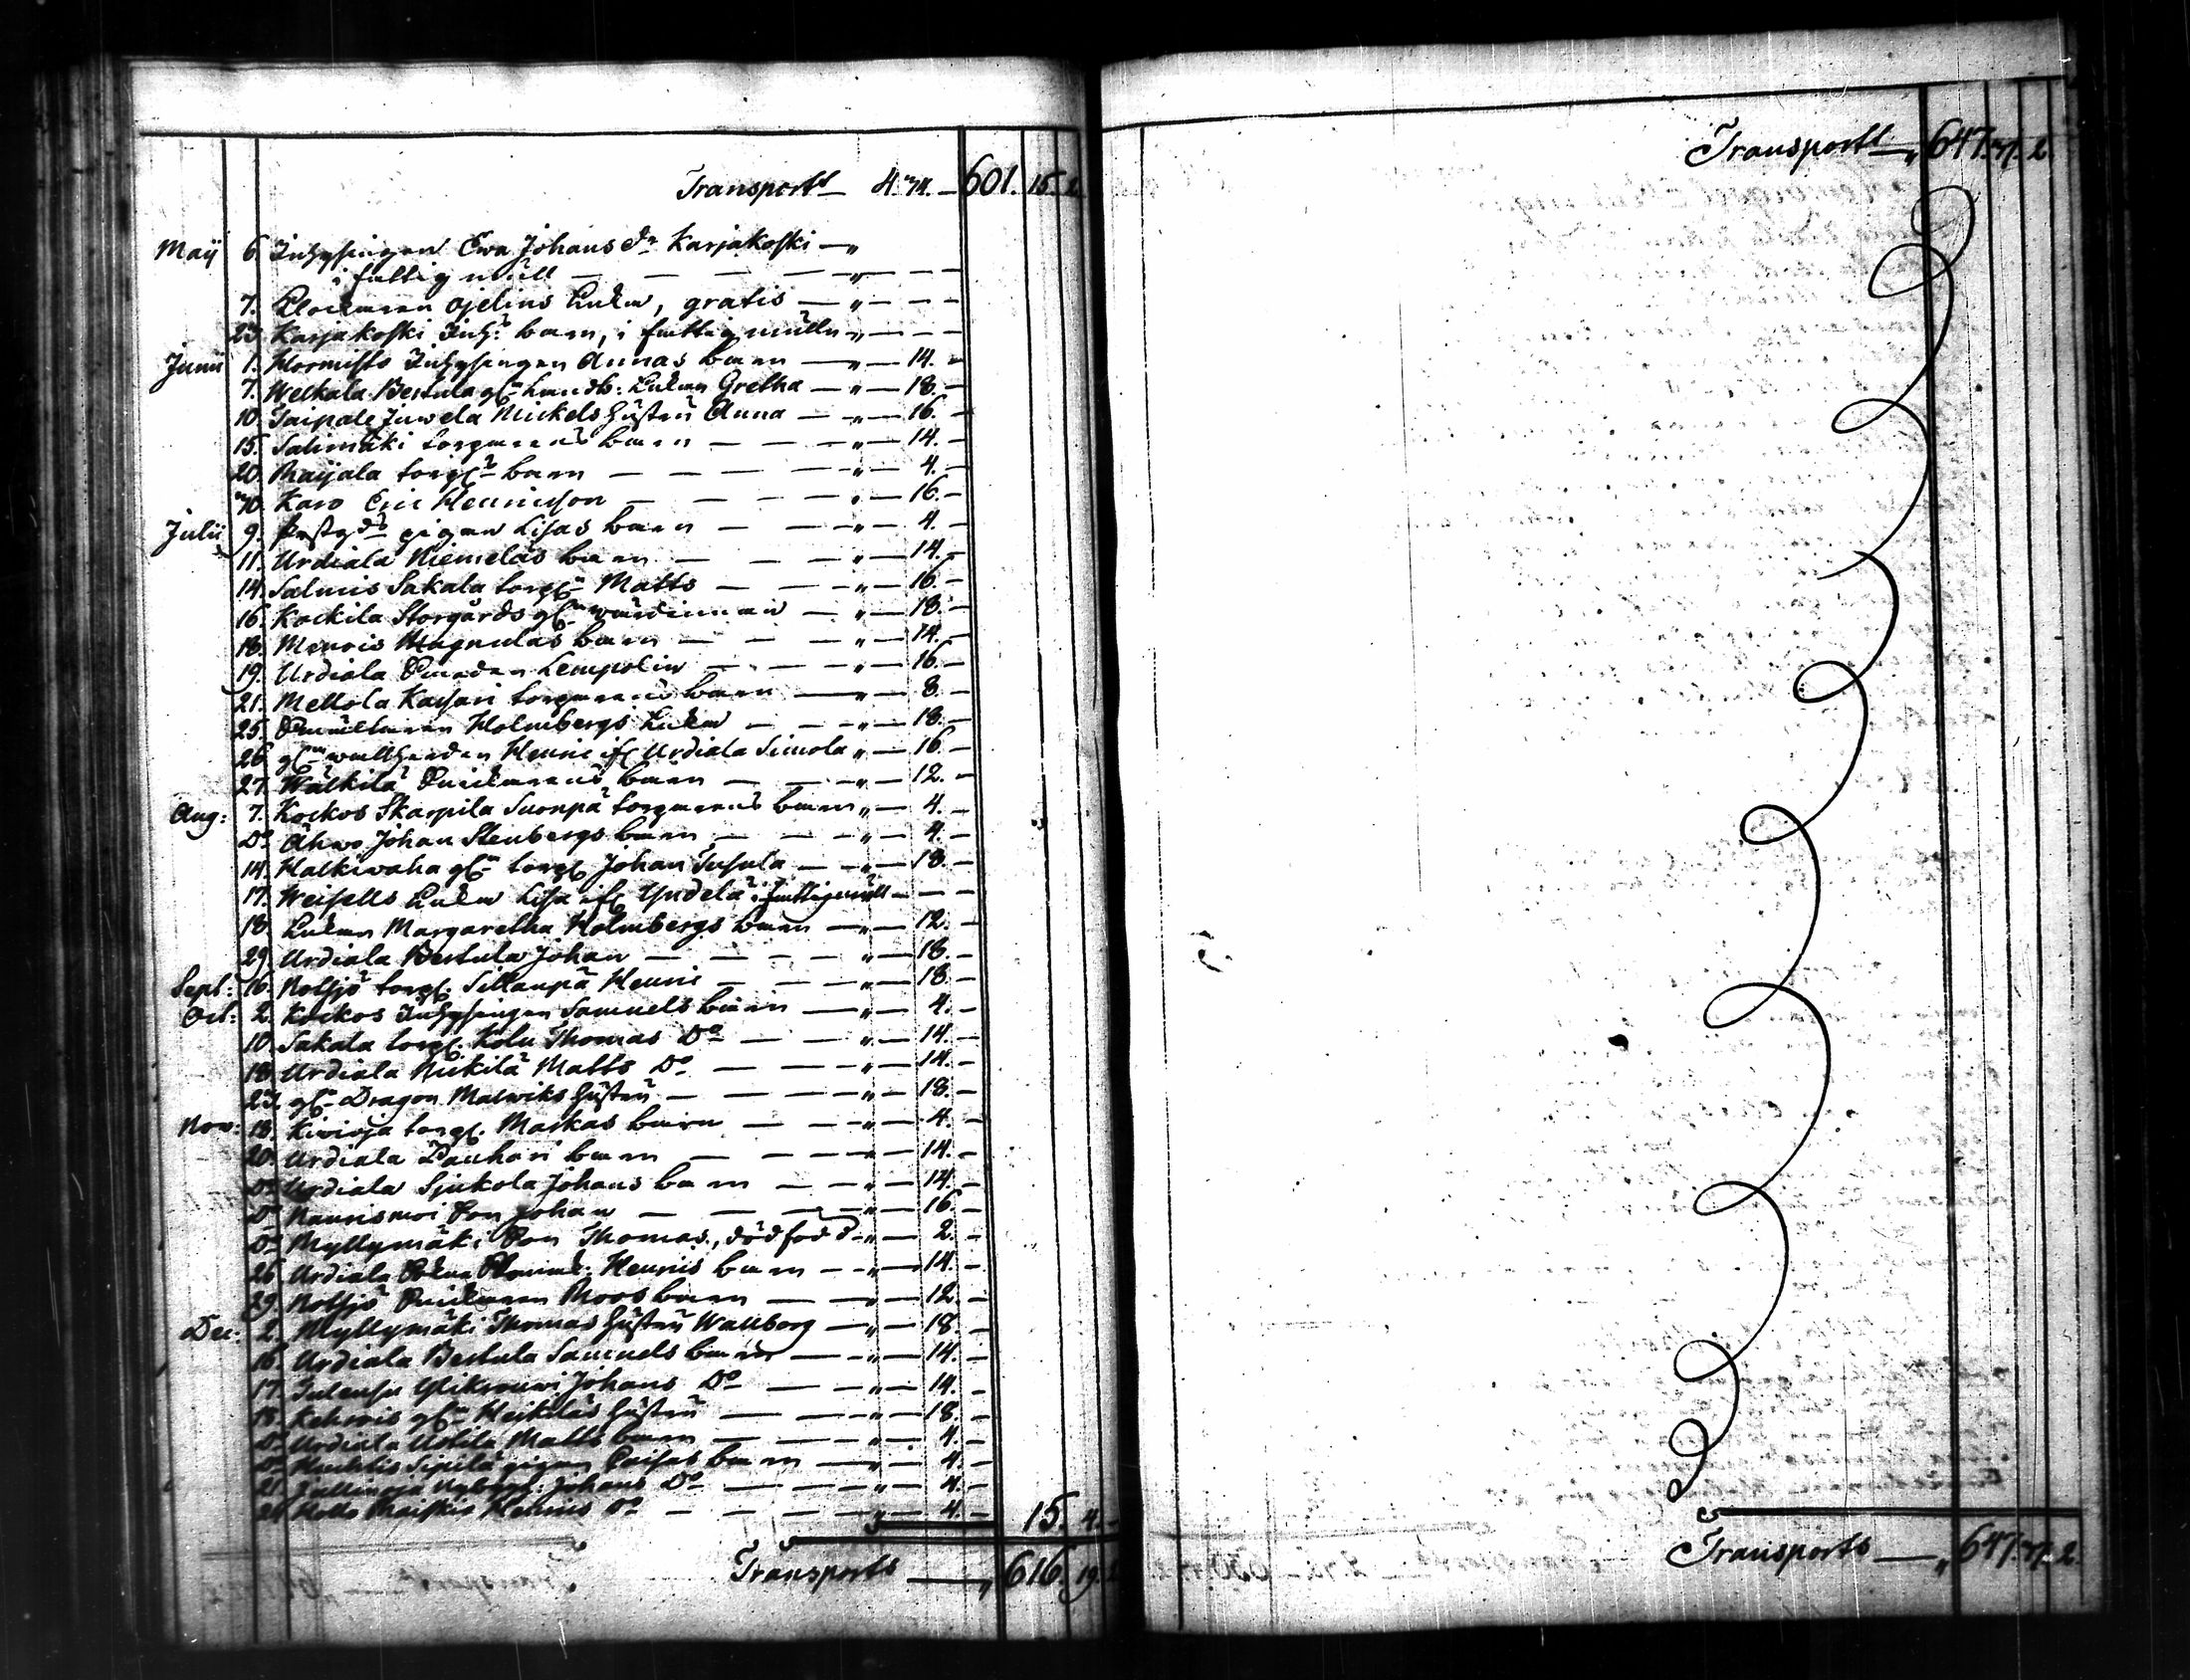 Transport 4. 34. — 601. 15. 2.
Maij 6. Inhysingen Ewa Johans dr Karjakoski — "
i fattig mull — — — — — " — — —
7. Klockaren Ojelius Enka, gratis — " — — —
23. Karjakoski Inh: barn, i fattig mulln " — — —
Junii 1. Hormisto Inhysingen Annas barn — " — 14. —
7. Welkala Bertula Enkan Gretha — " — 18. —
10. Taipale Juwela Mickels hustru Anna — " — 16. —
15. Salimäki torparens barn — — — " — 14. —
20. Maijala torp: barn — — — — " — 4. —
30. Karo Eric Henricsson — — — — " — 16. —
Julii 9. Prestgds pigan Lisas barn — — — " — 4. —
11. Urdiala Niemeläs barn — — — " — 14. —
14. Salmis Sakala torp: Matts — — — " — 16. —
16. Kockila Storgårds gl: wärdinnan — " — 18. —
18. Menois Magnulas barn — — — " — 14. —
19. Urdiala Lempolin — — — " — 16. —
21. Mellola Kaisari torparens barn — " — 8. —
25. Holmbergs Enka — — — " — 18. —
26. gl: Henric ifr Urdiala Simola " — 16. —
27. Wälkilä barn — — — " — 12. —
Aug: 7. Kockos Skarpila Suonpä torparens barn " — 4. —
Do Ähwo Johan Stenbergs barn — — — " — 4. —
14. Halkiwaha gl: torp: Johan Tusula — " — 18. —
17. Weisells Enka Lisa ifr Yndelä i fattigmull — — —
18. Enkan Margaretha Holmbergs barn — " — 12. —
29. Urdiala Bertula Johan — — — — " — 18. —
Sept: 16. Notsjö torp: Sillanpä Henric — — — " — 18. —
Oct: 2. Kockos Inhysingen Samuels barn — " — 4. —
10. Sakala torp: Kolu Thomas Do — — " — 14. —
18. Urdiala Nickilä Matts Do — — — " — 14. —
23. gl: Dragon Malwiks hustru — — — " — 18. —
Now: 18. Kiwioja torp: Maskas barn — — — " — 4. —
20. Urdiala Pauhari barn — — — " — 14. —
Do Urdiala Sjukola Johans barn — — " — 14. —
Do Naurismoi Son Johan — — — " — 16. —
Do Myllymäki Son Thomas, dödfödd — " — 2. —
26. Urdiala Henris barn — — " — 14. —
29. Notsjö Moos barn — — " — 12. —
Dec: 2. Myllymäki Thomas hustru Wallborg — " — 18. —
16. Urdiala Bertula Samuels barn — — " — 14. —
17. Johans Do — — — " — 14. —
18. Kehrois gl: Heikkiläs hustru — — — " — 18. —
Do Urdiala Uotila Matts barn — — — " — 4. —
Do Sipilä pigan Caisas barn — " — 4. —
21. Johans Do — — — " — 4. —
24. Henris Do — — — — " — 4. —
15. 4. —
Transports — " 616. 19. 2.
Transport — " 647. 37. 2.
Transports — " 647. 37. 2.